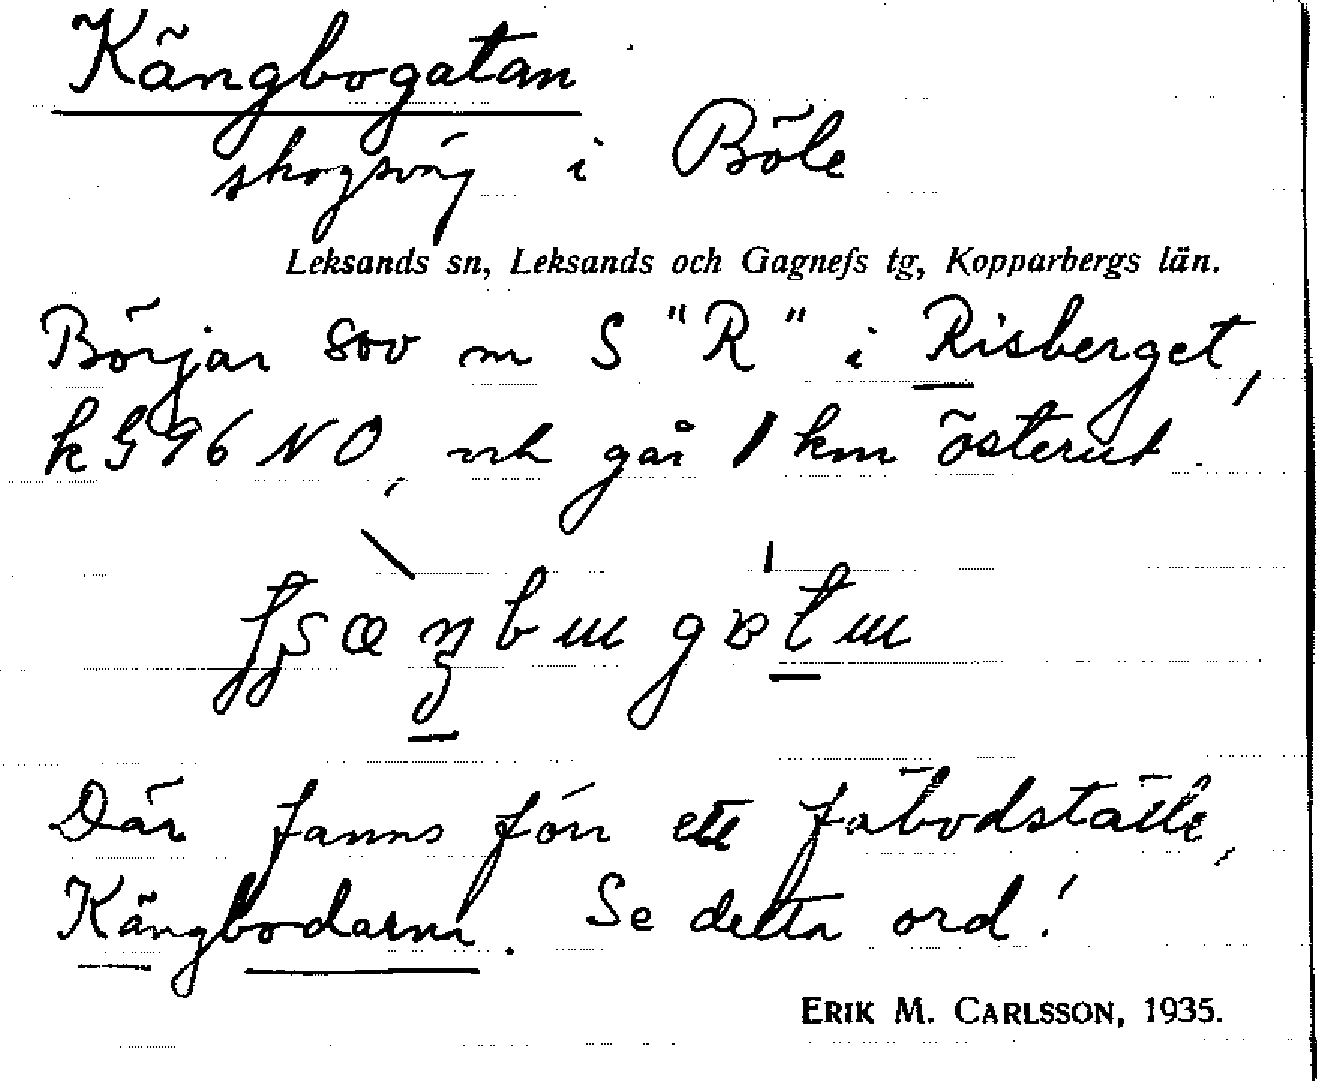 Kängbogatan
skogsväg i Böle
Leksands sn, Leksands och Gagnefs tg, Kopparbergs län.
Börjar 800 m S "R" i Risberget,
k G 96 NO, och går 1 km österut.
Där fanns förr ett fäbodställe,
Kängbodarna. Se detta ord!
ERIK M. CARLSSON, 1935.